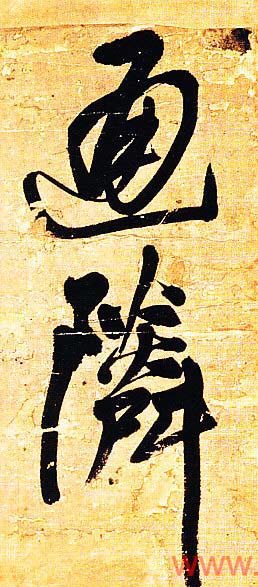 画隣
www.